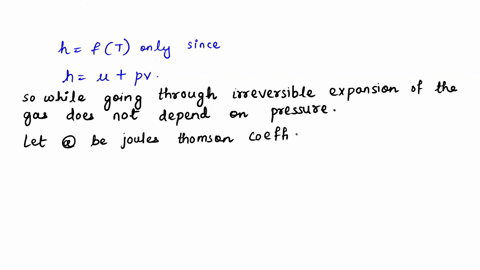 h = f(T) only since
h = u + pv.
so while going through irreversible expansion of the
gas does not depend on pressure.
Let @ be joules thomson coeffi.